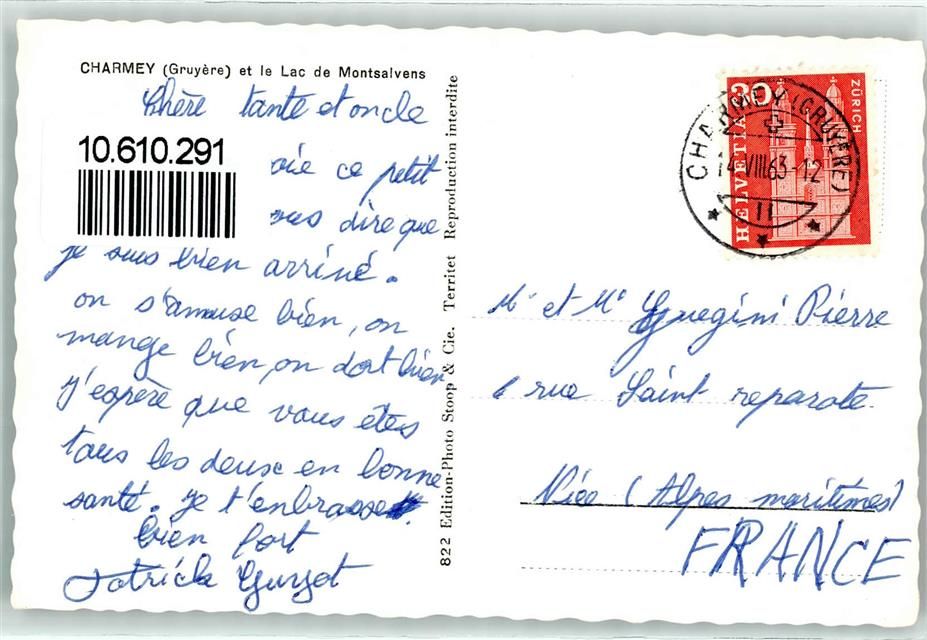 CHARMEY (Gruyère) et le Lac de Montsalvens
Chère tante et oncle
10.610.291
ce petit
vous dire que
je suis bien arrivé.
on s'amuse bien, on
mange bien, on dort bien
j'espère que vous êtes
tous les deux en bonne
santé. je t'enbrasse
bien fort
Patrick
822 Edition-Photo Stoop & Cie. Territet Reproduction interdite
HELVETIA
30
ZÜRICH
CHARMEY (GRUYÈRE)
14.VIII.63-12
11
Mr et Me Guegini Pierre
6 rue Saint reparate
Nice (Alpes maritimes)
FRANCE